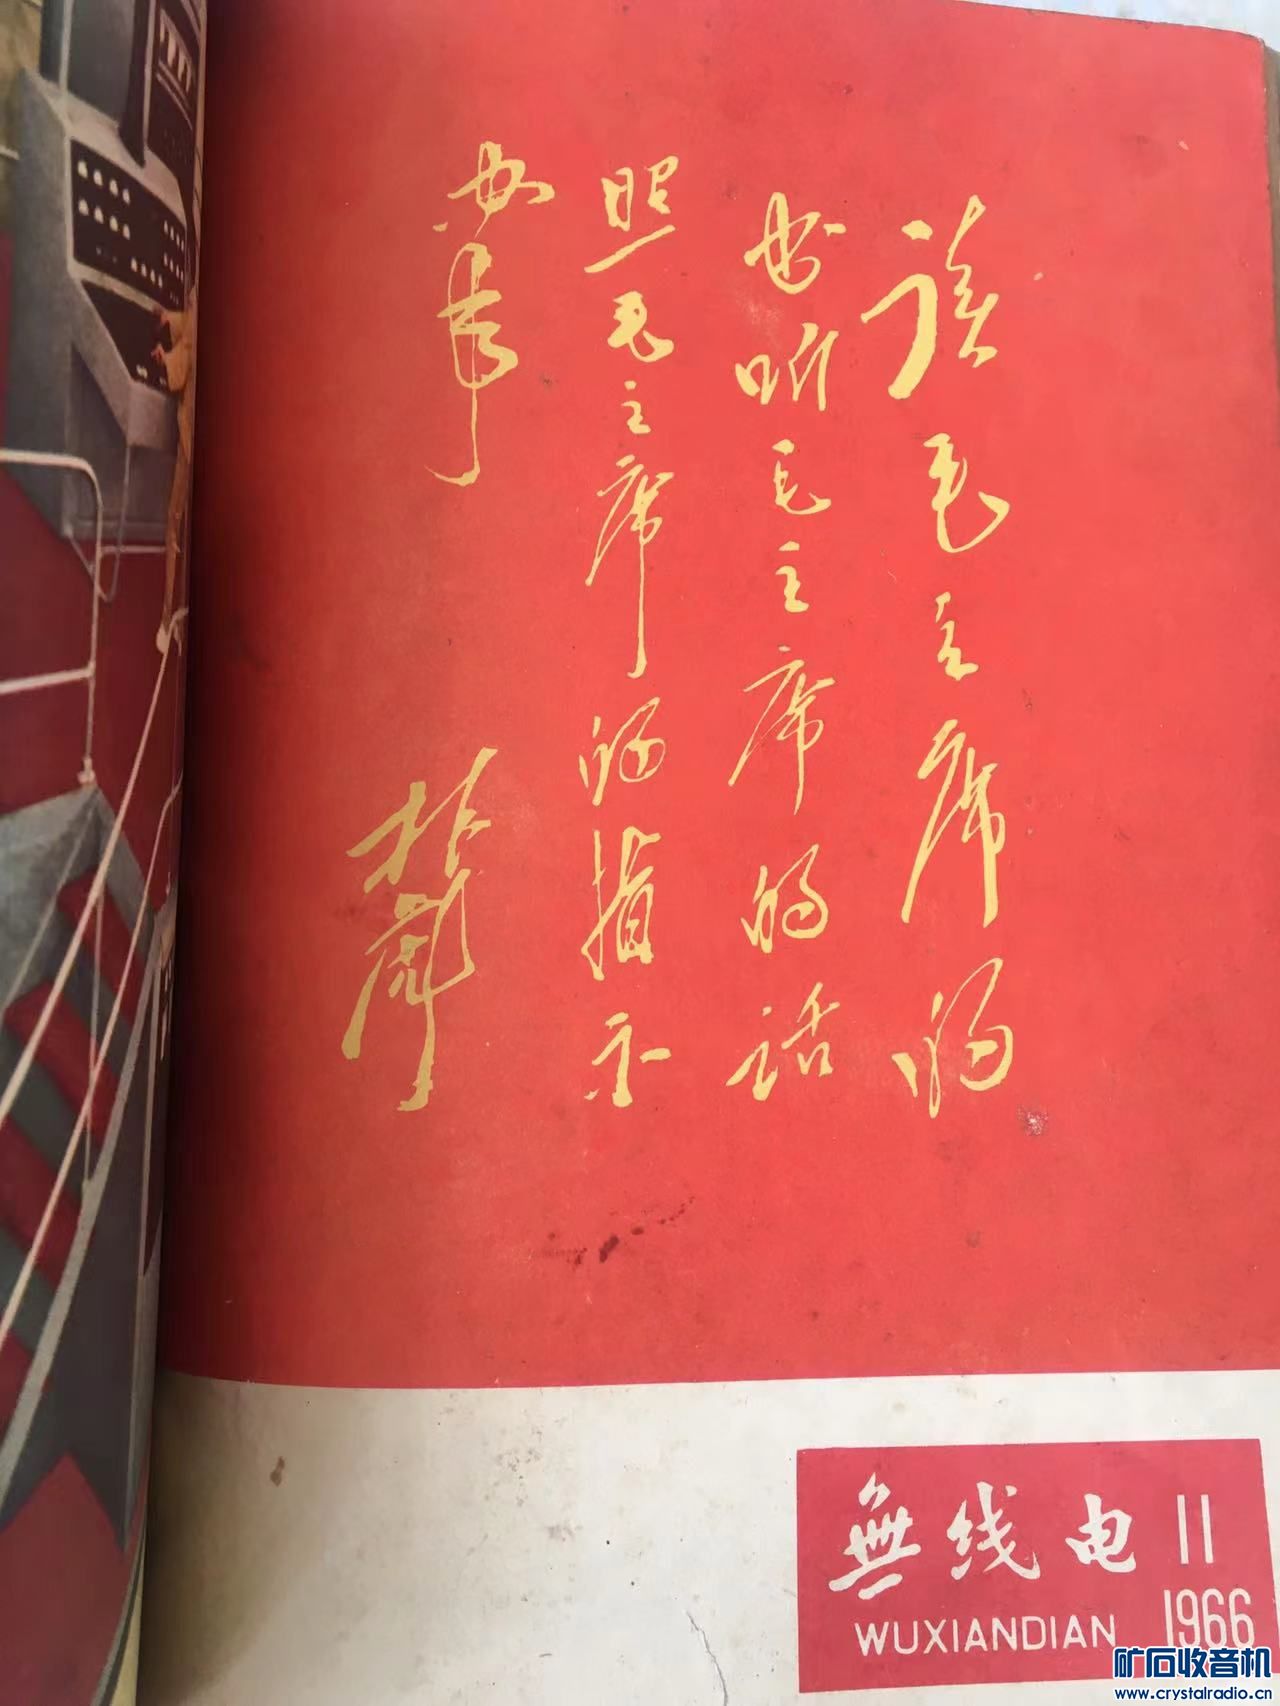 读毛主席的
书听毛主席的话
照毛主席的指示
办事
林彪
無线电 11
WUXIANDIAN 1966
矿石收音机
www.crystalradio.cn